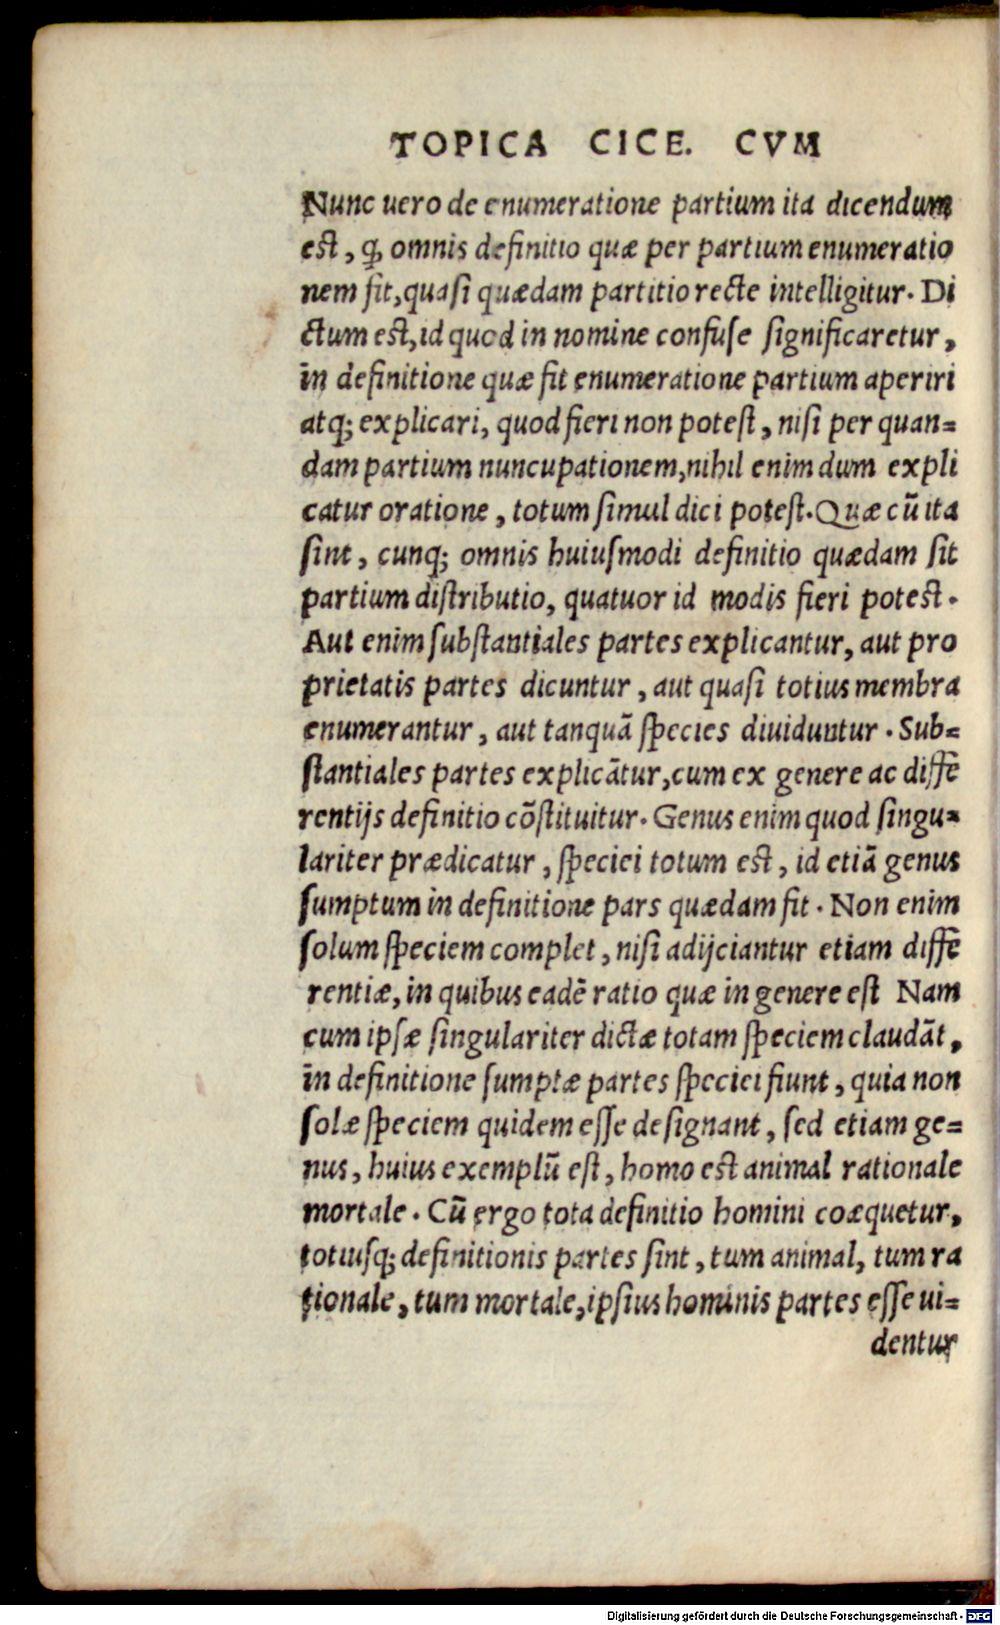 TOPICA CICE. CVM
Nunc uero de enumeratione partium ita dicendum
est, ꝙ omnis definitio quæ per partium enumeratio
nem fit, quasi quædam partitio recte intelligitur. Di
ctum est, id quod in nomine confuse significaretur,
in definitione quæ fit enumeratione partium aperiri
atq; explicari, quod fieri non potest, nisi per quan=
dam partium nuncupationem, nihil enim dum expli
catur oratione, totum simul dici potest. Quæ cũ ita
sint, cunq; omnis huiusmodi definitio quædam sit
partium distributio, quatuor id modis fieri potest.
Aut enim substantiales partes explicantur, aut pro
prietatis partes dicuntur, aut quasi totius membra
enumerantur, aut tanquã species diuiduntur. Sub=
stantiales partes explicãtur, cum ex genere ac diffẽ
rentijs definitio cõstituitur. Genus enim quod singu=
lariter prædicatur, speciei totum est, id etiã genus
sumptum in definitione pars quædam fit. Non enim
solum speciem complet, nisi adijciantur etiam diffẽ
rentiæ, in quibus eadẽ ratio quæ in genere est Nam
cum ipsæ singulariter dictæ totam speciem claudãt,
in definitione sumptæ partes speciei fiunt, quia non
solæ speciem quidem esse designant, sed etiam ge=
nus, huius exemplũ est, homo est animal rationale
mortale. Cũ ergo tota definitio homini coæquetur,
totiusq; definitionis partes sint, tum animal, tum ra
tionale, tum mortale, ipsius hominis partes esse ui=
dentur
Digitalisierung gefördert durch die Deutsche Forschungsgemeinschaft - DFG